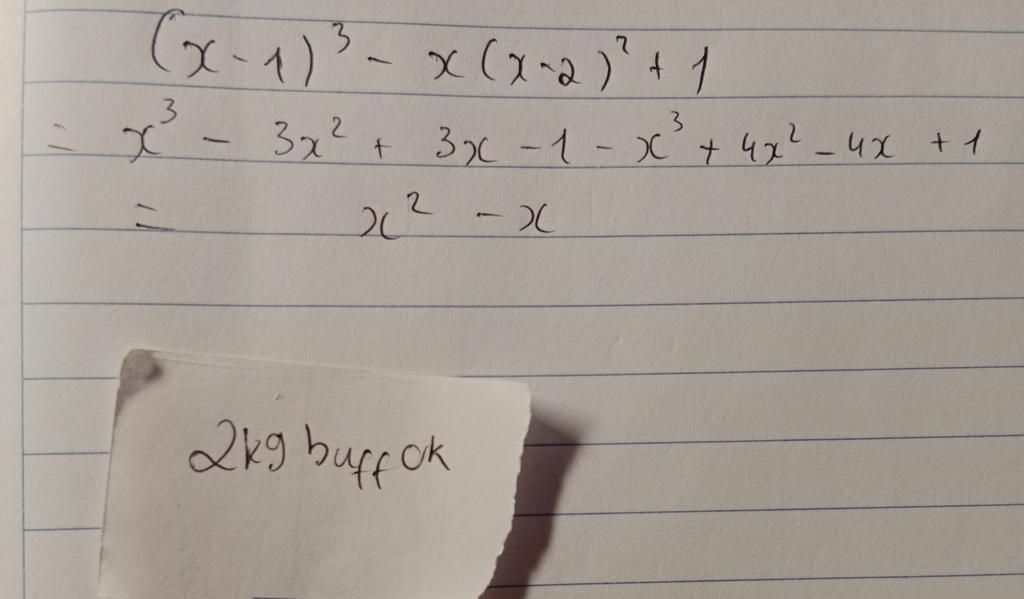 (x-1)³ - x(x-2)² + 1
= x³ - 3x² + 3x - 1 - x³ + 4x² - 4x + 1
= x² - x
2kg buff ok